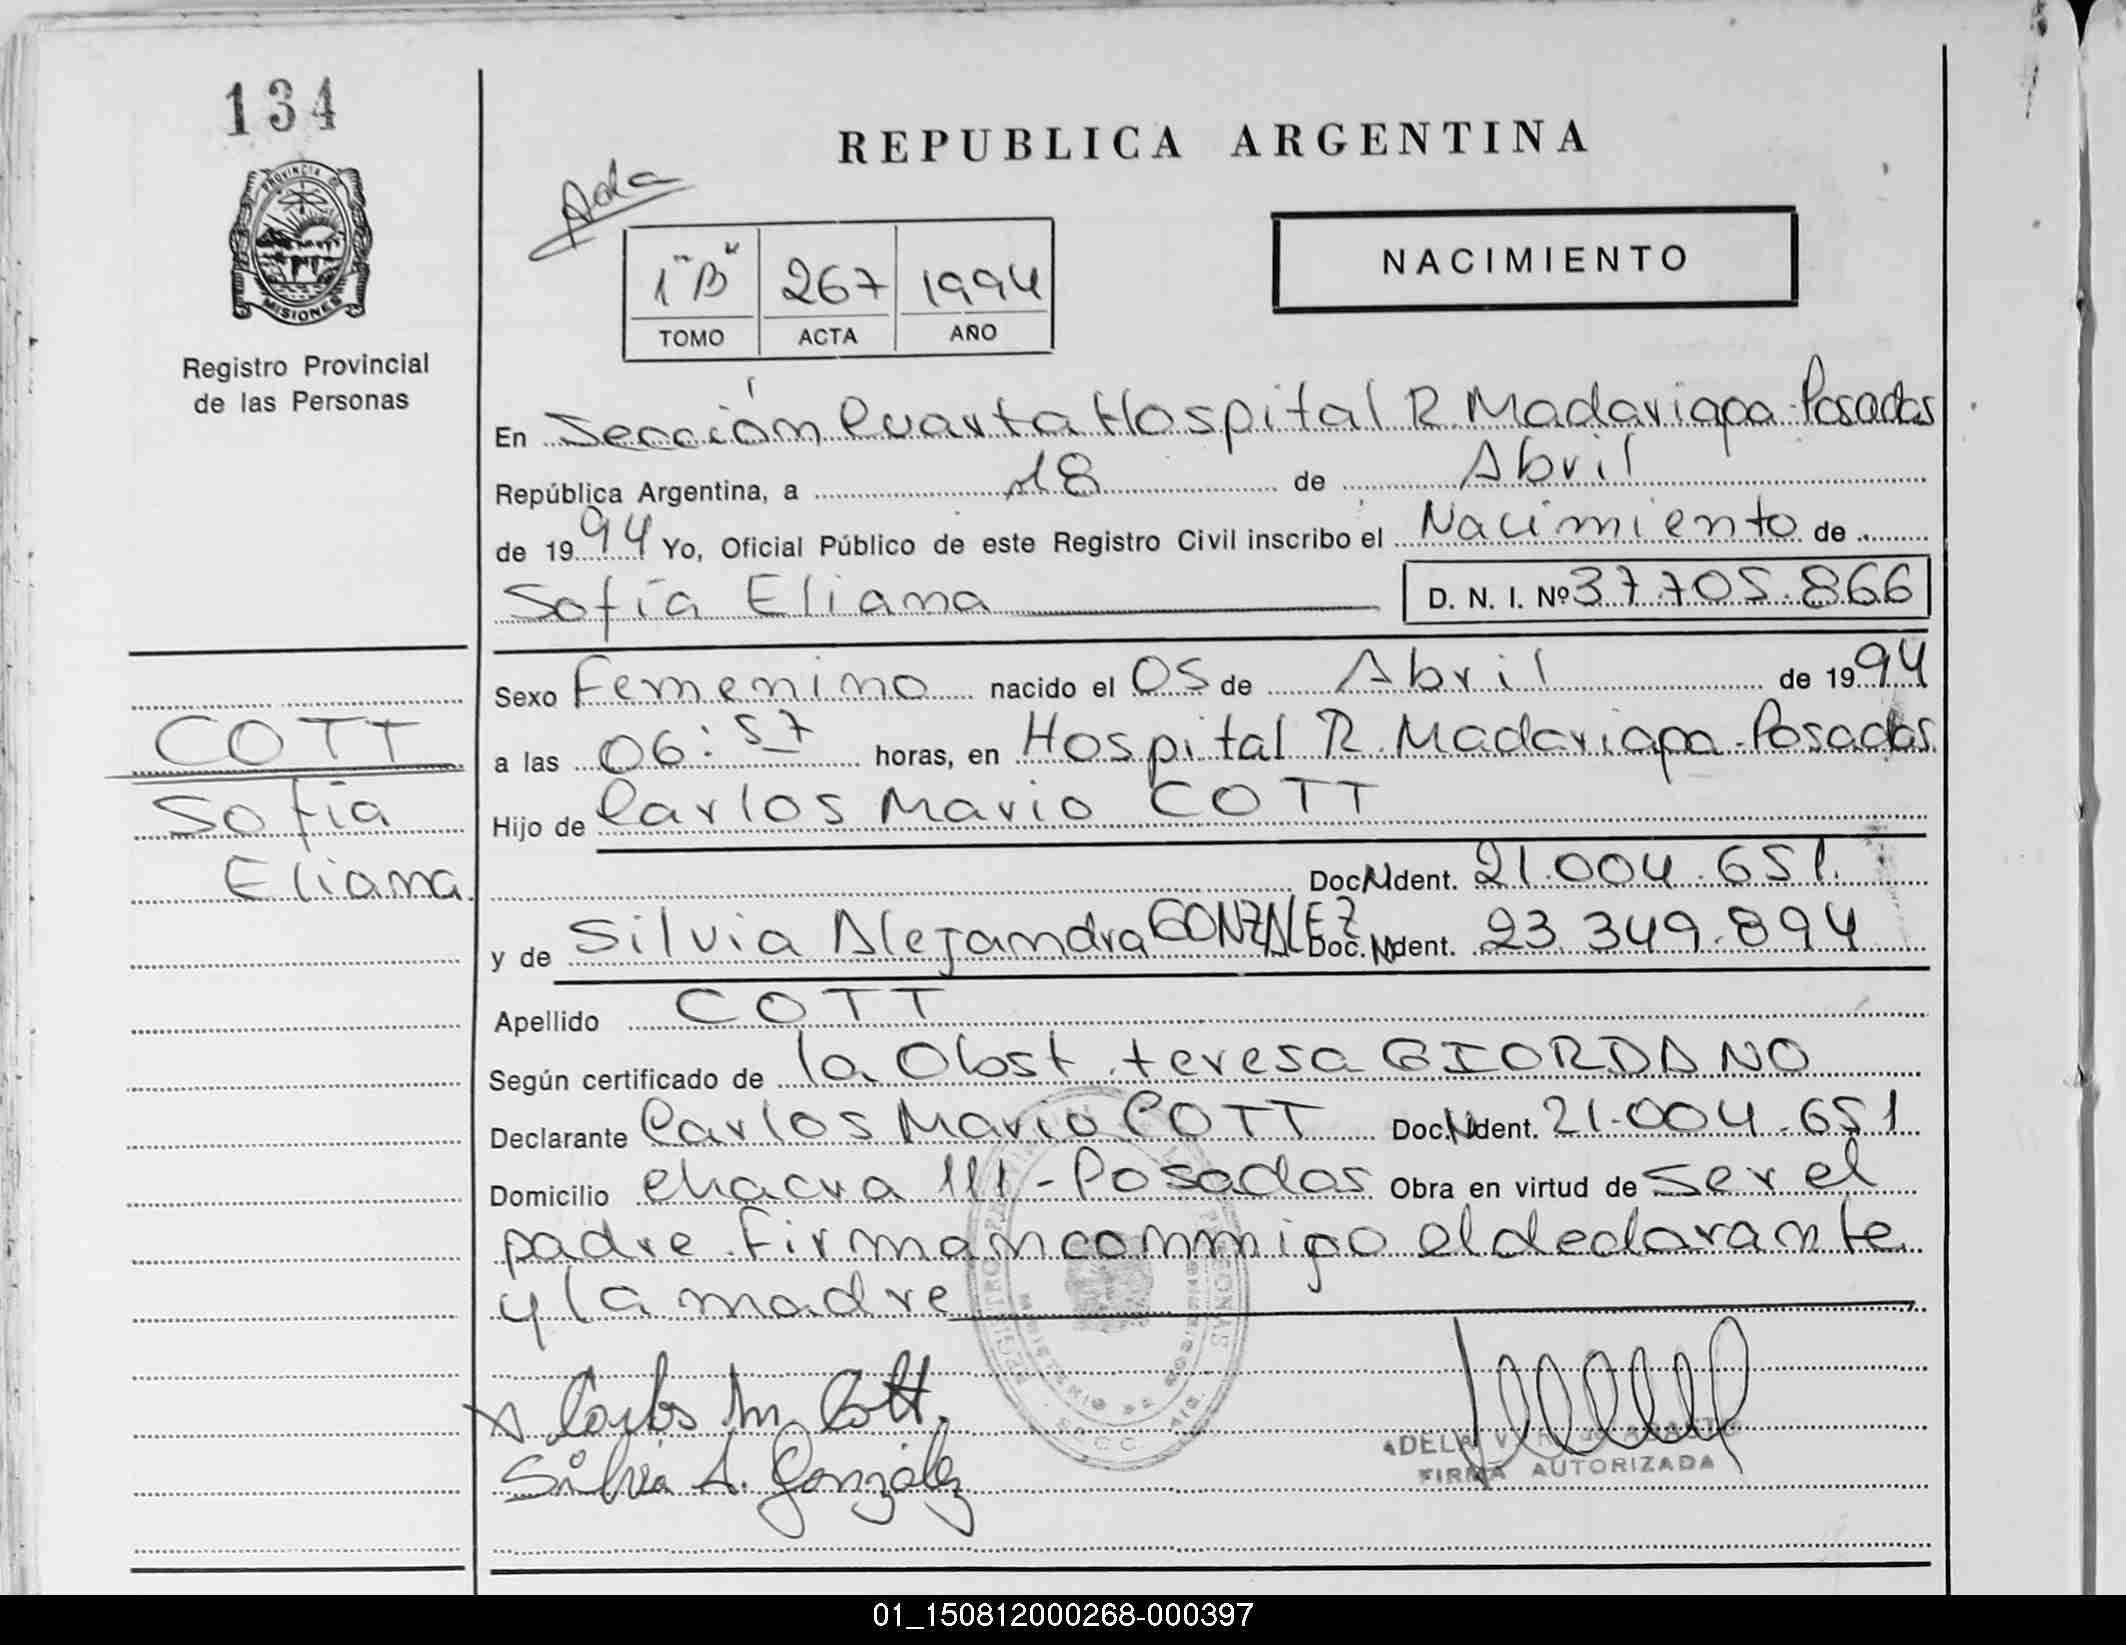 134
PROVINCIA D
MISIONES
Registro Provincial
de las Personas
REPUBLICA ARGENTINA
Ada
1 "B" 267 1994
TOMO ACTA AÑO
NACIMIENTO
En Sección Cuarta Hospital R. Madariaga - Posadas
República Argentina, a 18 de Abril
de 1994 Yo, Oficial Público de este Registro Civil inscribo el Nacimiento de
Sofía Eliana D. N. I. Nº 37.705.866
Sexo Femenino nacido el 05 de Abril de 1994
COTT
a las 06:57 horas, en Hospital R. Madariaga - Posadas
Sofía
Hijo de Carlos Mario COTT
Eliana
Doc. N Ident. 21.004.651.
y de Silvia Alejandra GONZALEZ Doc. N Ident. 23.349.894
Apellido COTT
Según certificado de la Obst. teresa GIORDANO
Declarante Carlos Mario COTT Doc. N Ident. 21.004.651
Domicilio chacra 111 - Posadas Obra en virtud de ser el
padre. Firman conmigo el declarante
y la madre
Carlos M. Cott.
Silvia A. González
ADELA
FIRMA AUTORIZADA
01_150812000268-000397